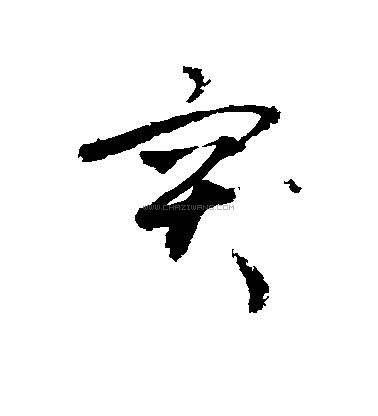 突
WWW.CHAZIWANG.COM